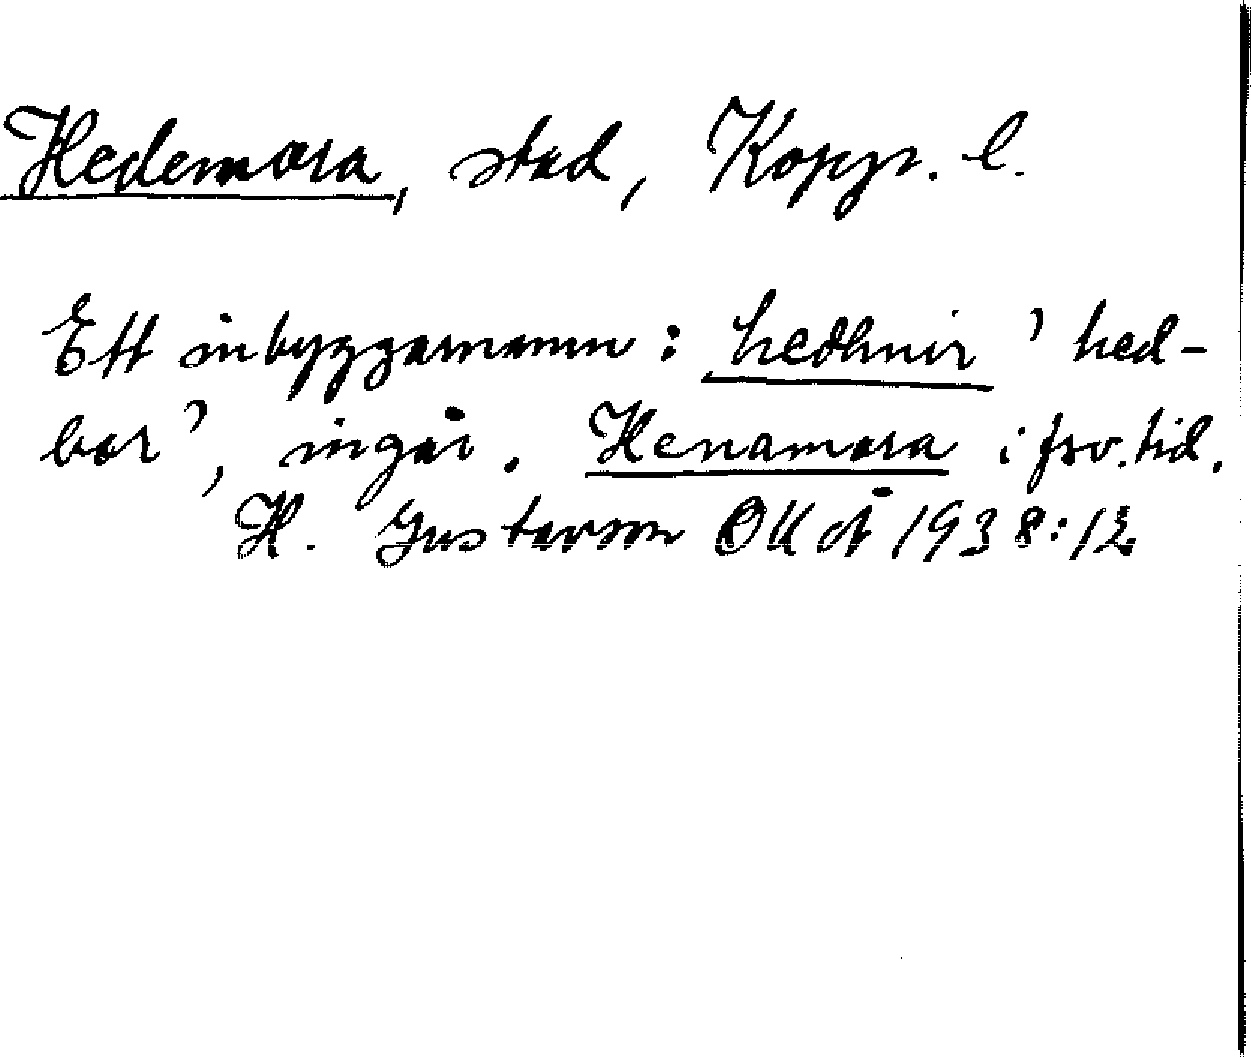 Hedemora, stad, Kopp. l.
Ett inbyggarnamn: hedhnir 'hed-
bor', ingår. Henamora i fsv. tid.
H. Gustavson OUÅ 1938:12